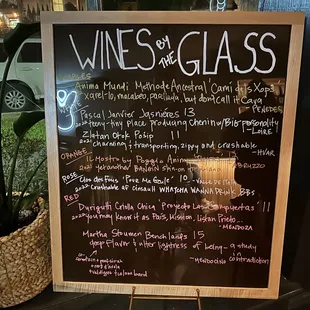 WINES BY THE GLASS
Anima Mundi Methode Ancestral "Camí dels Xops"
xarel-lo, macabeo, but don't call it Cava
PENEDES
Pascal Janvier Jasnières 13
teeny-tiny place Producing Chenin w/ BIG personality
- LOIRE
Zlatan Otok Pošip 11
charming + transporting, zippy and crushable
- HVAR
ORANGE
Il Mostro by Poggio Anima
ABRUZZO
ROSE
Clos des Fous, "Pour Ma Gueule" 10
Crushable af cinsault WHATCHA WANNA DRINK BBS
RED
Durigutti Criolla Chica "Proyecto Las Compuertas" 11
you may know it as País, Mission, Listan Prieto
- MENDOZA
Martha Stoumen Benchlands 15
deep flavor & utter lightness of being - a study
in contradiction
- MENDOCINO